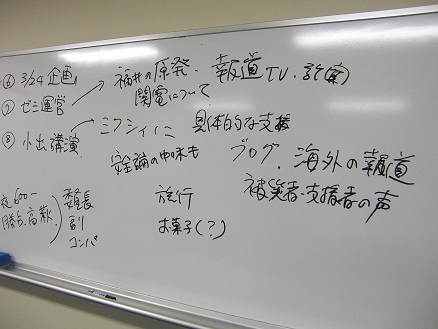 ⑥ 3/24 企画
⑦ ゼミ運営
⑧ 小出講演
福井の原発・報道TV・
関電について
ミクシィに 具体的な支援
ブログ、海外の報道
被災者・支援者の声
600-
勝ち・高萩
委員長
副
コンパ
旅行
お菓子(?)